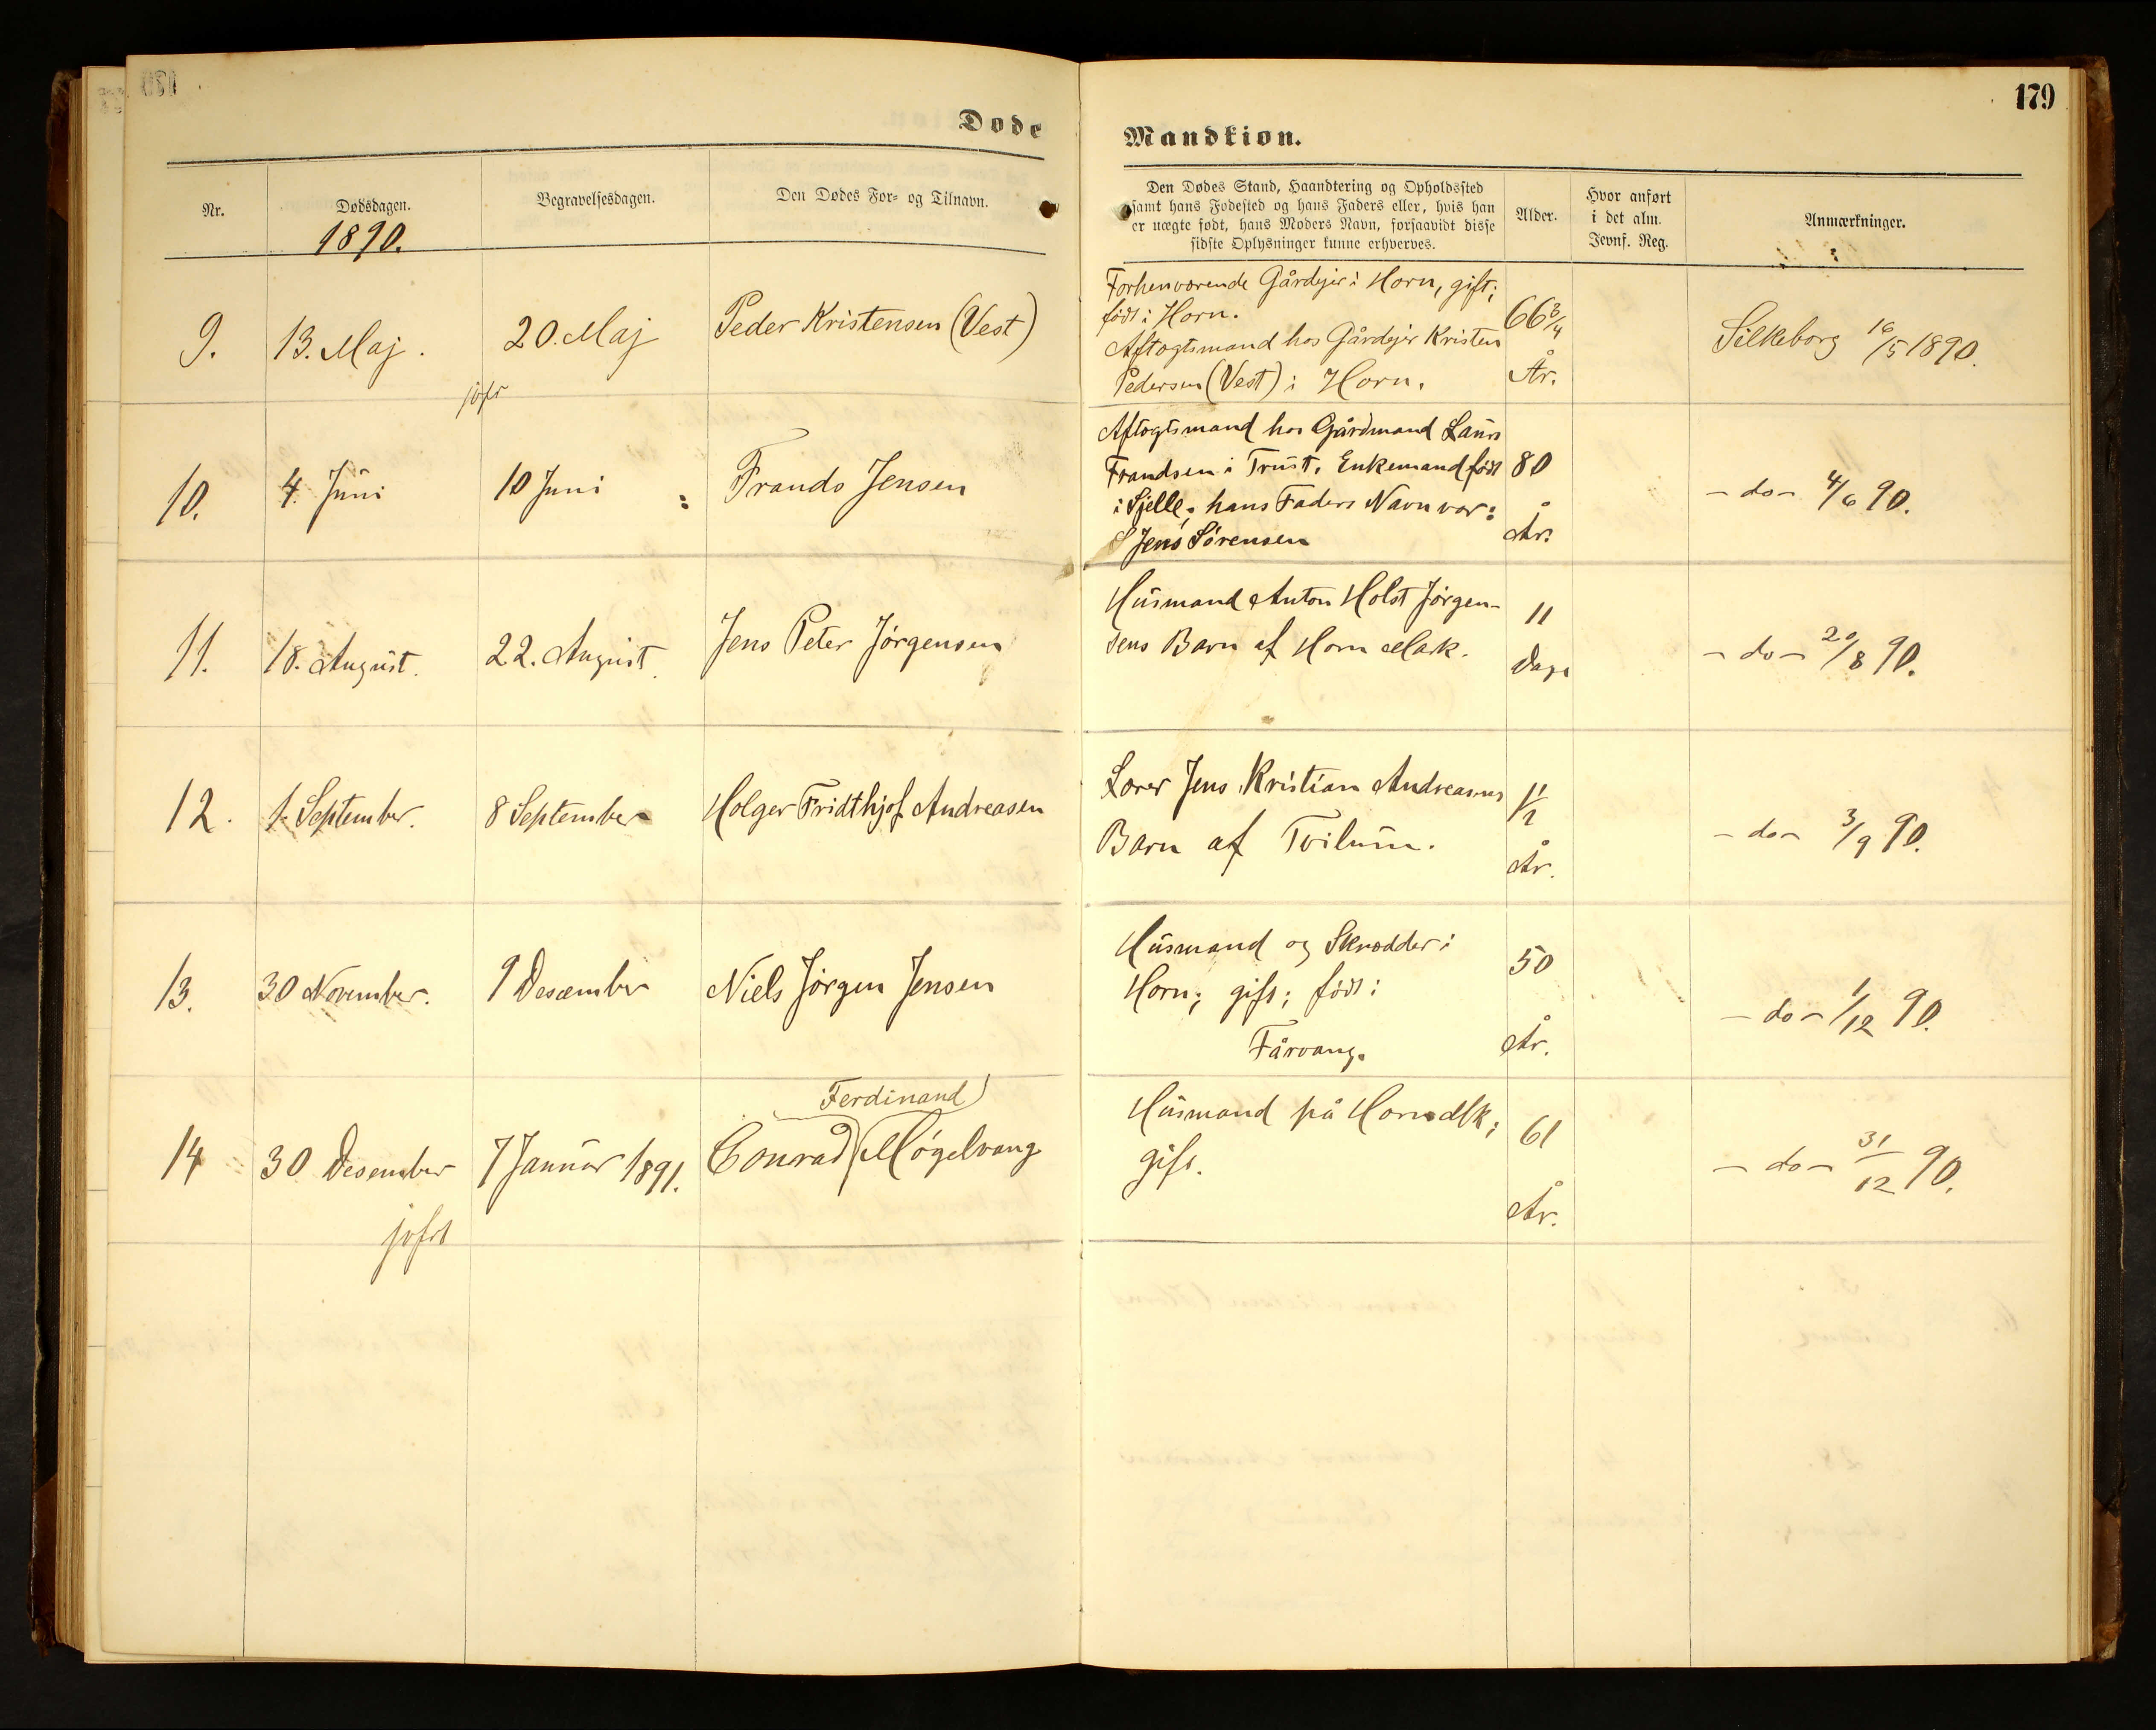 Døde
Mandkiøn.
179
Nr.
Dødsdagen.
1890.
Begravelsesdagen.
Den Dødes For- og Tilnavn.
Den Dødes Stand, Haandtering og Opholdssted
samt hans Fødested og hans Faders eller, hvis han
er uægte født, hans Moders Navn, forsaavidt disse
sidste Oplysninger kunne erhverves.
Alder.
Hvor anført
i det alm.
Jevnf. Reg.
Anmærkninger.
9.
13. Maj.
20. Maj
Peder Kristensen (Vest)
Forhenværende Gårdejer i Horn, gift;
født i Horn.
Aftægtsmand hos Gårdejer Kristen
Pedersen (Vest) i Horn.
66 3/4
År.
Silkeborg 16/5 1890.
jvfr
10.
4. Juni
10 Juni
Frands Jensen
Aftægtsmand hos Gårdmand Laurs
Frandsen i Trust. Enkemand født
i Sjelle; hans Faders Navn var:
Jens Sørensen
80
År.
- do - 4/6 90.
11.
18. August.
22. August.
Jens Peter Jørgensen
Husmand Anton Holst Jørgen-
sens Barn af Horn Mark.
11
Dage
- do - 20/8 90.
12.
1. September.
8 September
Holger Fridthjof Andreasen
Lærer Jens Kristian Andreasens
Barn af Tvilum.
1 1/2
År.
- do - 3/9 90.
13.
30 November.
9 Desember
Niels Jørgen Jensen
Husmand og Skrædder i
Horn; gift; født i
Fårvang.
50
År.
- do - 1/12 90.
14
30 Desember
7 Januar 1891.
Ferdinand
Conrad Møgelvang
Husmand på Horn Mk;
gift.
61
År.
- do - 31/12 90.
jvfrt